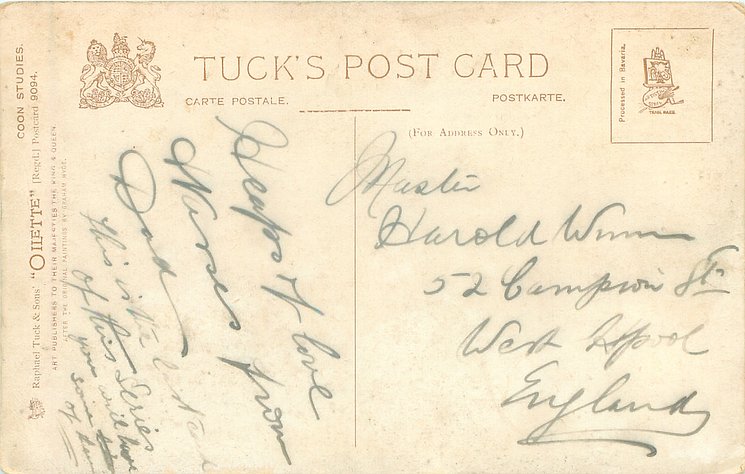 COON STUDIES.
Raphael Tuck & Sons' "OILETTE" [Regd.] Postcard 9094.
ART PUBLISHERS TO THEIR MAJESTIES THE KING & QUEEN.
AFTER THE ORIGINAL PAINTINGS BY GRAHAM HYDE.
TUCK'S POST CARD
CARTE POSTALE.
POSTKARTE.
(FOR ADDRESS ONLY.)
Processed in Bavaria.
TRADE MARK.
Heaps of love
& kisses from
Dad
this is the
of this Series
you will have
some
of
Master
Harold Winn
52 Campion St
West Hpool
England